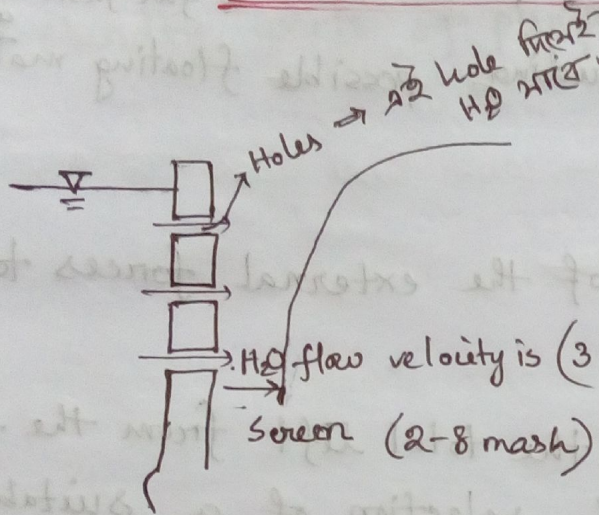 Holes → এই hole দিয়েই
H₂O যাবে
H₂O flow velocity is (3
Screen (2-8 mash)